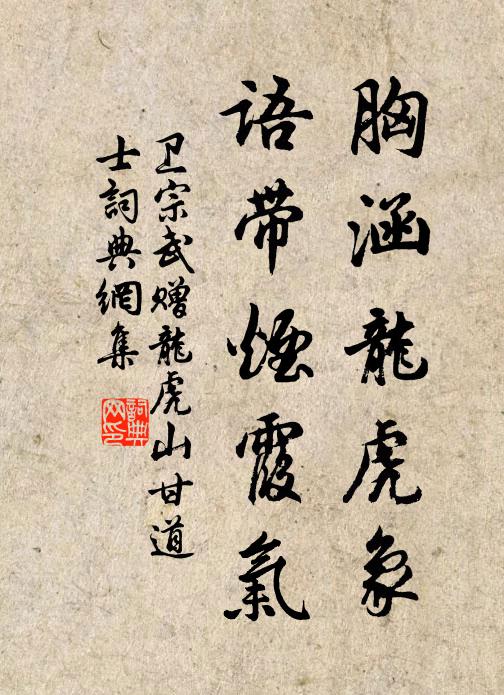 胸涵龍虎象
语帶煙霞氣
卫宗武赠龍虎山甘道
士詞典網集
詞典网印